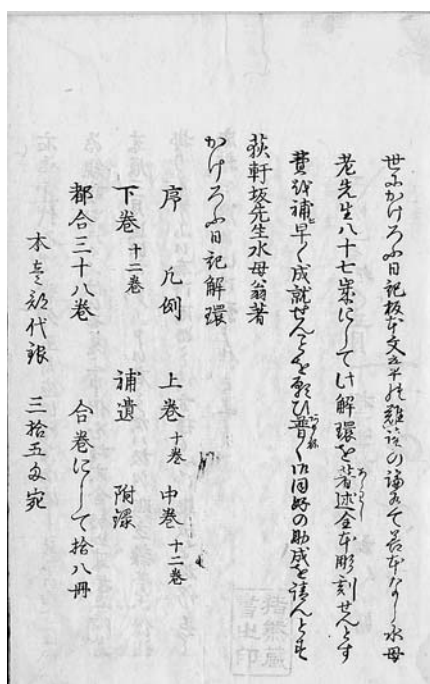 世にかけろふ日記板本文五千の難誤の論有て善本なし水母
老先生八十七歳にして此解環を著述全本彫刻せんとす
費を補早く成就せんことを願ひ普く御同好の助成を請んとす
荻軒坂先生水母翁著
かけろふ日記解環
序 凡例 上巻 十巻 中巻 十二巻
下巻 十二巻 補遺 附録
都合三十八巻 合巻にして拾八冊
本壱部代銀 三拾五匁宛